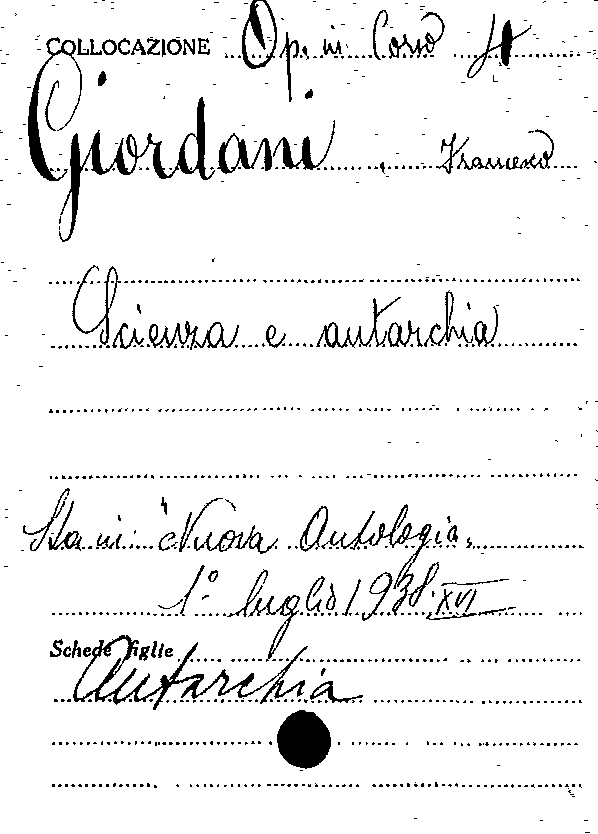 COLLOCAZIONE Op. in Corso
Giordani, Francesco
Scienza e autarchia
Sta in: "Nuova Antologia"
1° luglio 1938. XVI
Schede figlie
Autarchia